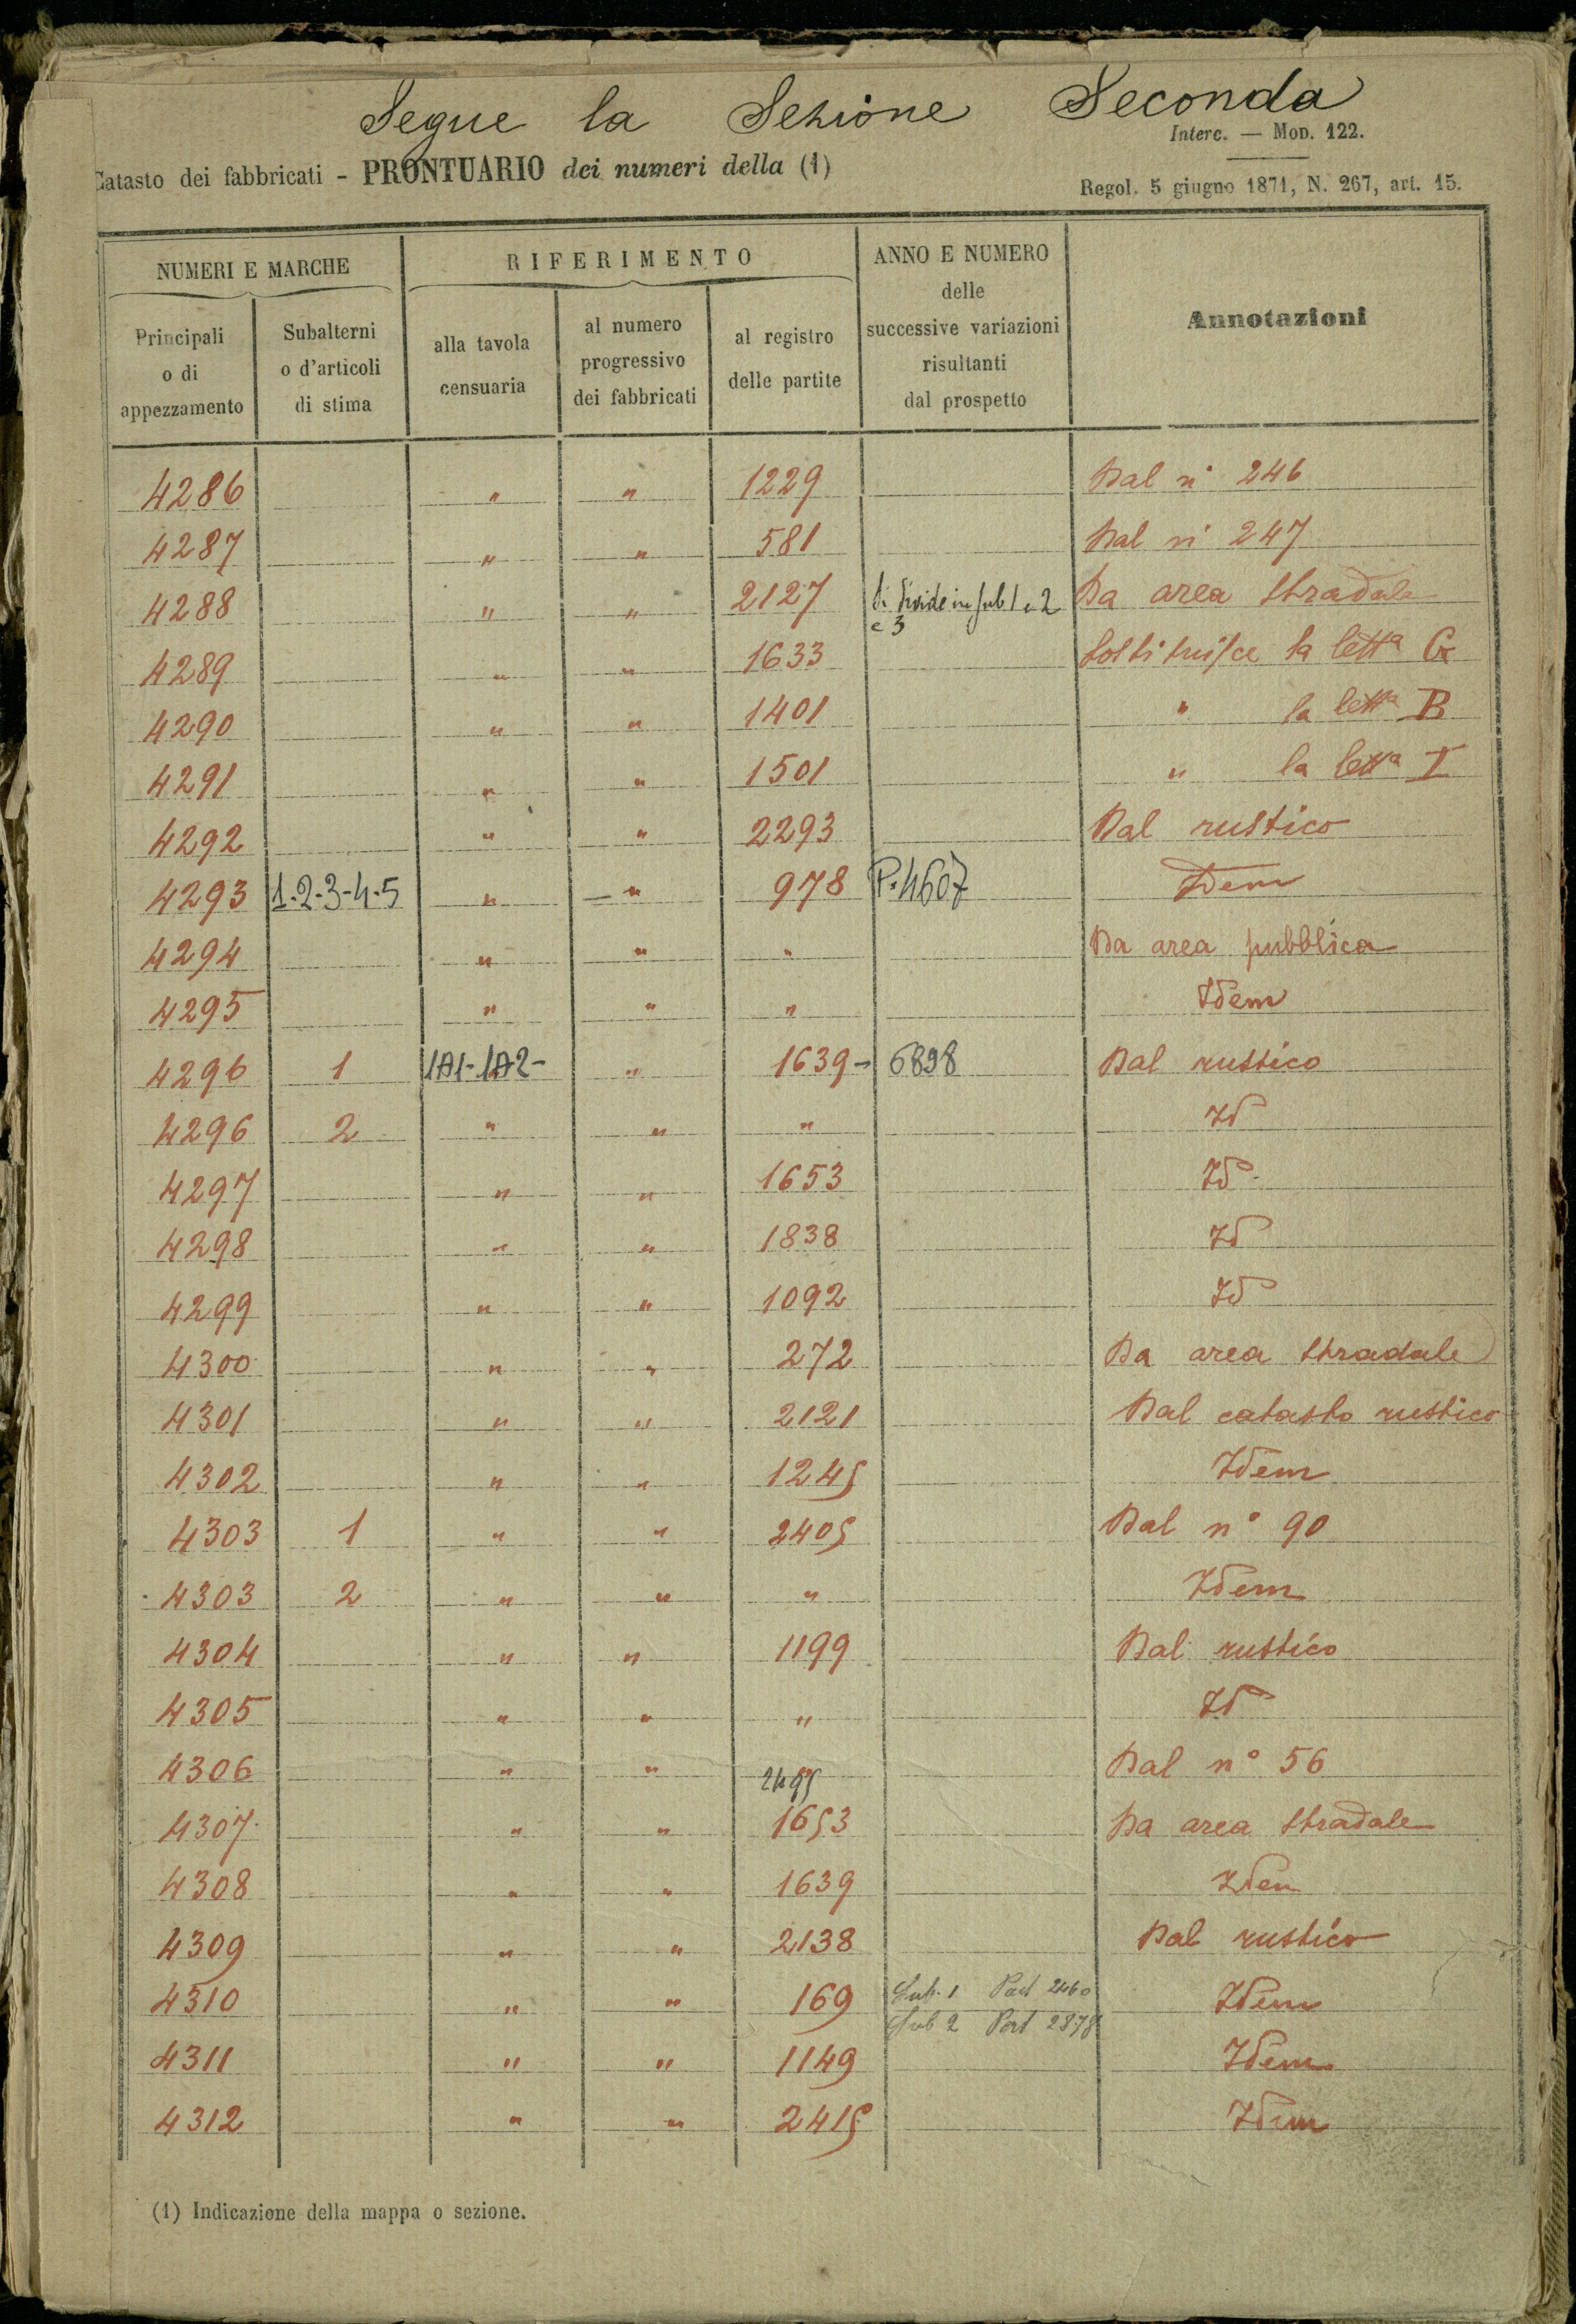 Segue la Sezione Seconda
Interc. — Mod. 122.
Catasto dei fabbricati - PRONTUARIO dei numeri della (1)
Regol. 5 giugno 1871, N. 267, art. 15.
NUMERI E MARCHE
RIFERIMENTO
ANNO E NUMERO delle successive variazioni risultanti dal prospetto
Annotazioni
Principali o di appezzamento
Subalterni o d'articoli di stima
alla tavola censuaria
al numero progressivo dei fabbricati
al registro delle partite
4286 " " 1229 Dal n° 246
4287 " " 581 Dal n° 247
4288 " " 2127 Si divide in sub 1 e 2 Da area stradale
e 3
4289 " " 1633 Sostituisce la lettª G
4290 " " 1401 " la lettª B
4291 " " 1501 " la lettª I
4292 " " 2293 Dal rustico
4293 1-2-3-4-5 " — " 978 P. 4607 Idem
4294 " " " Da area pubblica
4295 " " " Idem
4296 1 1A1-1A2- " 1639 - 6898 Dal rustico
4296 2 " " " Id
4297 " " 1653 Id.
4298 " " 1838 Id
4299 " " 1092 Id
4300 " " 272 Da area stradale
4301 " " 2121 Dal catasto rustico
4302 " " 1245 Idem
4303 1 " " 2405 Dal n° 90
4303 2 " " " Idem
4304 " " 1199 Dal rustico
4305 " " " Id
4306 " " Dal n° 56
4307 " " 1653 Da area stradale
4308 " " 1639 Idem
4309 " " 2138 Dal rustico
4310 " " 169 Sub. 1 Part 2460 Idem
Sub 2 Part 2878
4311 " " 1149 Idem
4312 " " 2415 Idem
(1) Indicazione della mappa o sezione.